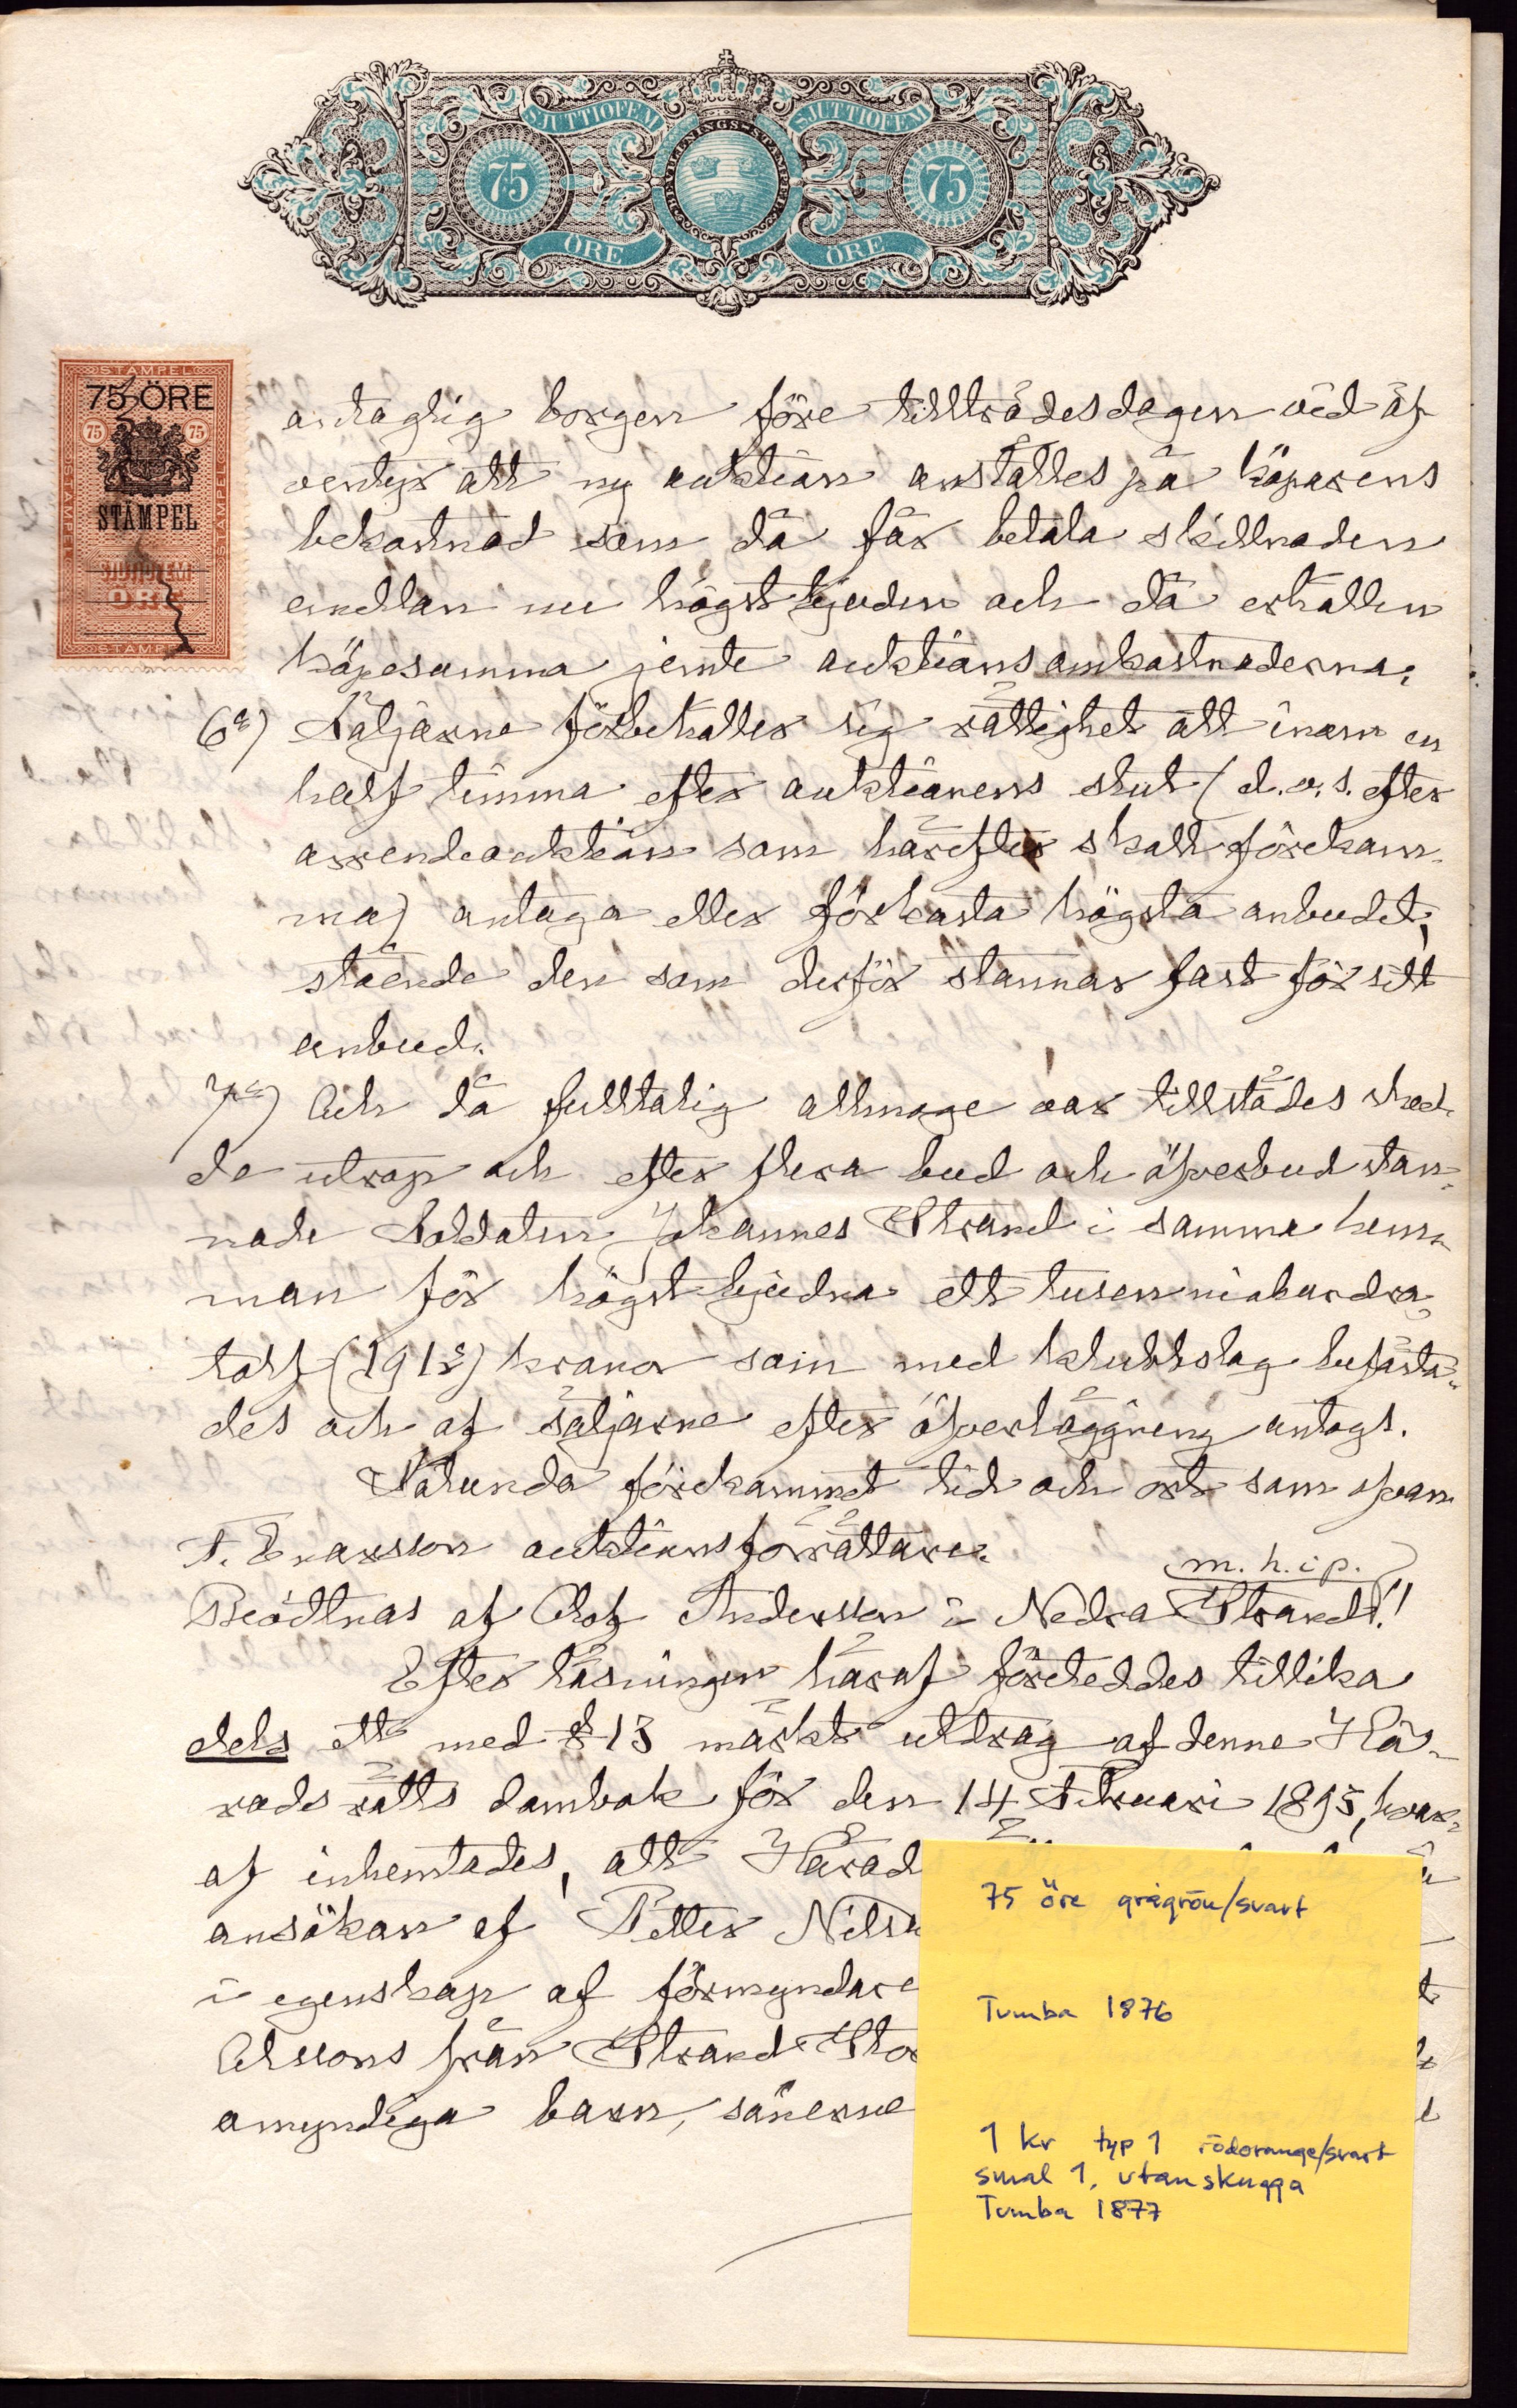 SJUTTIOFEM SJUTTIOFEM
BEVILLNINGS-STÄMPEL
75 75
ÖRE ÖRE
STÄMPEL
75 ÖRE
75 75
STÄMPEL
STÄMPEL
STÄMPEL
SJUTTIOFEM
ÖRE
STÄMPEL
antaglig borgen före tillträdesdagen vid äf
ventyr att ny auktion anställes på köparens
bekostnad som då får betala skillnaden
emellan nu högst bjuden och då erhållen
köpesumma jemte auktionsomkostnaderna.
6o) Säljarne förbehåller sig rättighet att inom en
half timma efter auktionens slut (d.v.s. efter
arrendeauktion som härefter skall förekom-
ma) antaga eller förkasta högsta anbudet,
stående den som derför stannar fast för sitt
anbud.
7o) Och då fulltalig allmoge var tillstädes sked-
de utrop och efter flera bud och öfverbud stan-
nade Soldaten Johannes Strand i samma hem-
man för högst bjudna ett tusen niohundra
tolf (1912) kronor som med klubbslag befästa-
des och af säljarne efter öfverläggning antogs.
Sålunda förekommet tid och ort som ofvan
F. Enarsson auktionsförrättare.
m. h. i p.
Beödtnas af Olof Andersson i Nedra Strand!!
Efter läsningen häraf företeddes tillika
dels ett med § 13 märkt utdrag af denne Hä-
rads rätts dombok för den 14 Februari 1895, hvar-
af inhemtades, att Härad
ansökan af Petter Nils
i egenskap af förmyndare
Olssons från Strand Sto
omyndiga barn, sönerne
75 öre grågrön/svart
Tumba 1876
1 kr typ 1 rödorange/svart
smal 1, utan skugga
Tumba 1877